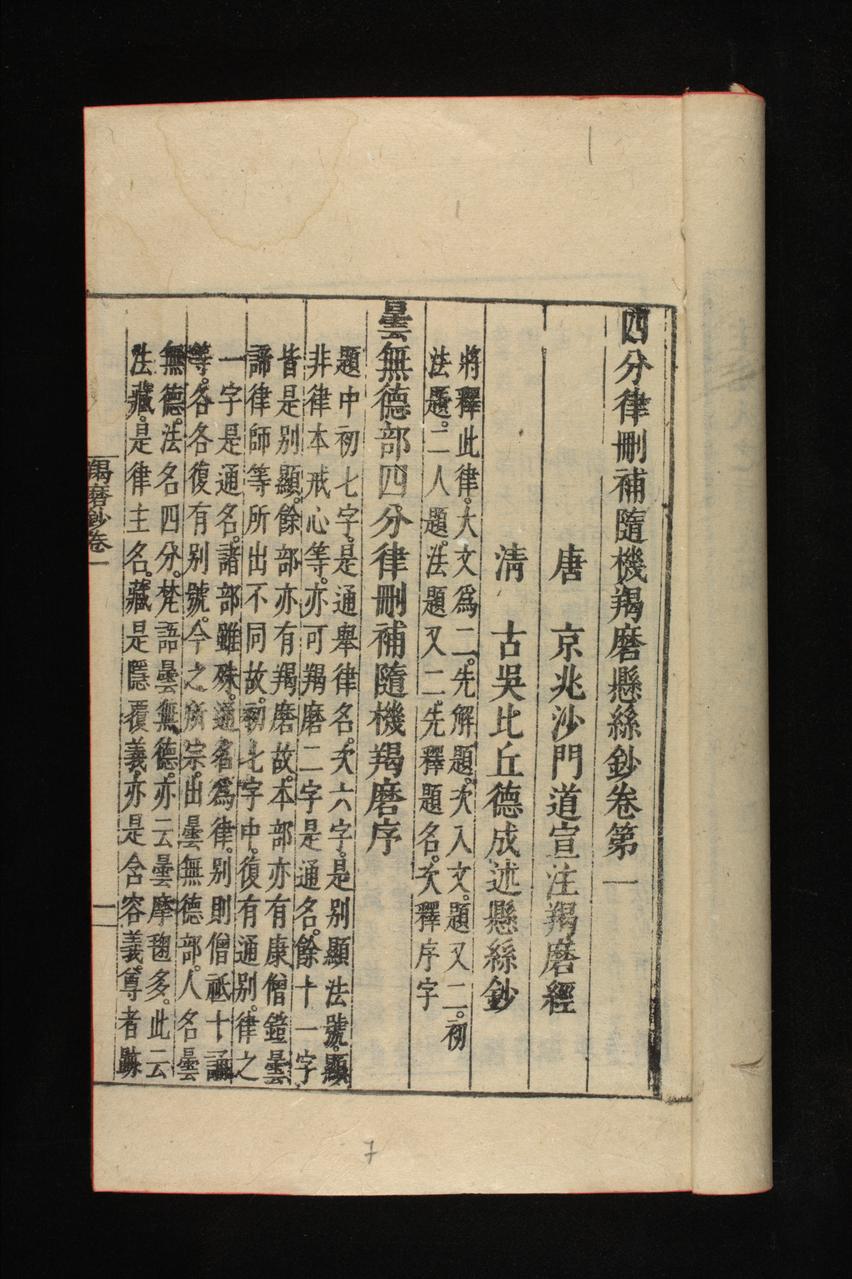 四分律刪補隨機羯磨懸絲鈔卷第一
唐　京兆沙門道宣注羯磨經
清　古吳比丘德成述懸絲鈔
將釋此律。大文爲二。先解題。次入文。題又二。初
法題。二人題。法題又二。先釋題名。次釋序字
曇無德部四分律刪補隨機羯磨序
題中初七字。是通舉律名。次六字。是別顯法號。顯
非律本戒心等。亦可羯磨二字是通名。餘十一字
皆是別顯。餘部亦有羯磨故。本部亦有康僧鎧曇
諦律師等所出不同故。初七字中。復有通別。律之
一字是通名。諸部雖殊。通名爲律。別則僧祇十誦
等。各各復有別號。今之所宗。出曇無德部。人名曇
無德。法名四分。梵語曇無德。亦云曇摩毱多。此云
法藏。是律主名。藏是隱覆義。亦是含容義。尊者跡
羯磨鈔卷一
一
7